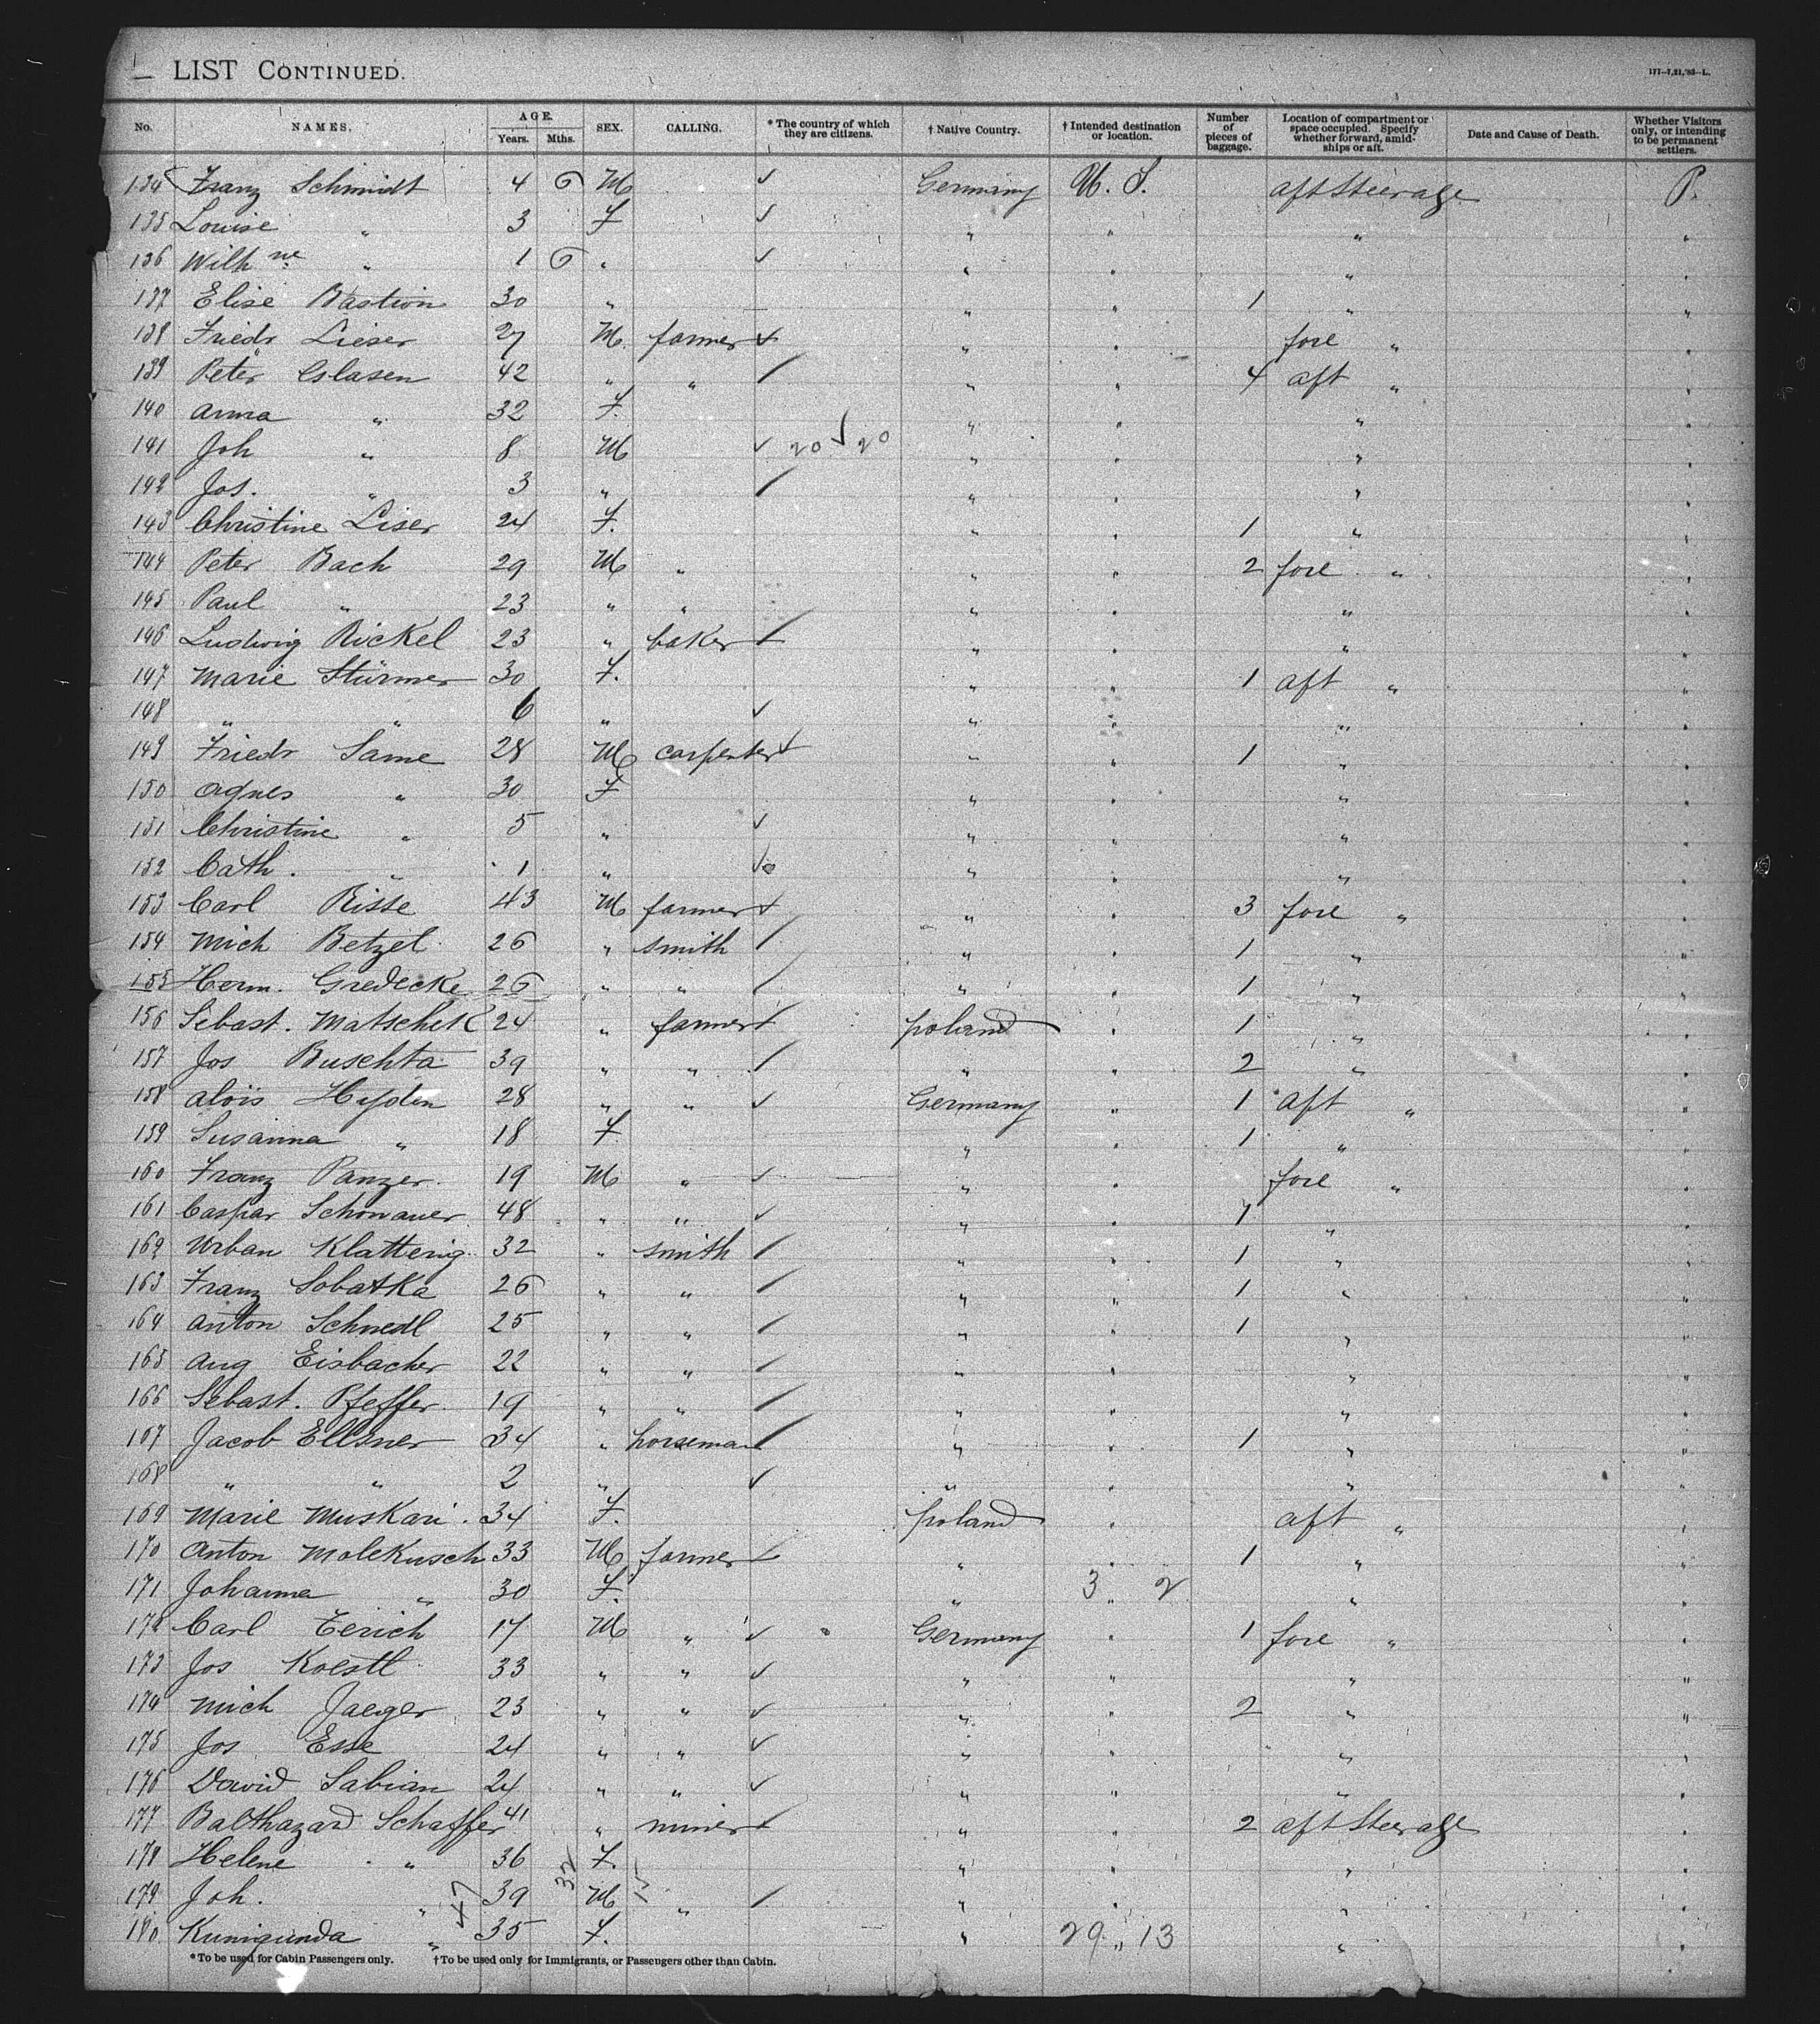 LIST CONTINUED.
177—7,21,'83—L.
No. NAMES. AGE. Years. Mths. SEX. CALLING. * The country of which they are citizens. † Native Country. † Intended destination or location. Number of pieces of baggage. Location of compartment or space occupied. Specify whether forward, amidships or aft. Date and Cause of Death. Whether Visitors only, or intending to be permanent settlers.
134 Franz Schmidt 4 6 M ✓ Germany U. S. aft Steerage P.
135 Louise " 3 F ✓ " " " "
136 Wilh ne " 1 6 " ✓ " " " "
137 Elise Bastion 30 " " " 1 " "
138 Friedr Lieser 27 M. farmer ✓ " " fore " "
139 Peter Clasen 42 " " / " " 4 aft " "
140 Anna " 32 F. " " " "
141 Joh " 8 M ✓ 20 ✓ 20 " " " "
142 Jos. " 3 " / " " " "
143 Christine Liser 24 F. " " 1 " "
144 Peter Bach 29 M " " " 2 fore " "
145 Paul " 23 " " " " " "
146 Ludwig Rickel 23 " baker / " " " "
147 Marie Stürmer 30 F. " " 1 aft " "
148 " " 6 " ✓ " " " "
149 Friedr Same 28 M carpenter ✓ " " 1 " "
150 Agnes " 30 F " " " "
151 Christine " 5 " ✓ " " " "
152 Cath. " 1 " ✓ " " " "
153 Carl Risse 43 M farmer ✓ " " 3 fore " "
154 Mich Betzel 26 " smith / " " 1 " "
155 Herm. Gredecke 26 " " / " " 1 " "
156 Sebast. Matschek 24 " farmer / poland " 1 " "
157 Jos Buschta 39 " " / " " 2 " "
158 Alois Heyden 28 " " ✓ Germany " 1 aft " "
159 Susanna " 18 F " " 1 " "
160 Franz Panzer 19 M " ✓ " " fore " "
161 Caspar Schonauer 48 " " ✓ " " 1 " "
162 Urban Klattenig 32 " smith / " " 1 " "
163 Franz Sobatka 26 " " / " " 1 " "
164 Anton Schnedl 25 " " / " " 1 " "
165 Aug Eisbacher 22 " " / " " " "
166 Sebast. Pfeffer 19 " " / " " " "
167 Jacob Ellsner 34 " horseman / " " 1 " "
168 " " 2 " ✓ " " " "
169 Marie Muskari 34 F. poland " aft " "
170 Anton Molekusch 33 M farmer ✓ " " 1 " "
171 Johanna " 30 F. " 3 " 2 " "
172 Carl Terich 17 M " ✓ Germany " 1 fore " "
173 Jos Koestl 33 " " ✓ " " " "
174 Mich Jaeger 23 " " ✓ " " 2 " "
175 Jos Esse 24 " " ✓ " " " "
176 David Sabian 24 " " ✓ " " " "
177 Balthazard Schaffer 41 " miner ✓ " " 2 aft Steerage "
178 Helene " 36 32 F. " " " "
179 Joh. " 47 39 M 15 " / " " " "
180 Kunigunda " 35 F. " 29 " 13 " "
* To be used for Cabin Passengers only. † To be used only for Immigrants, or Passengers other than Cabin.